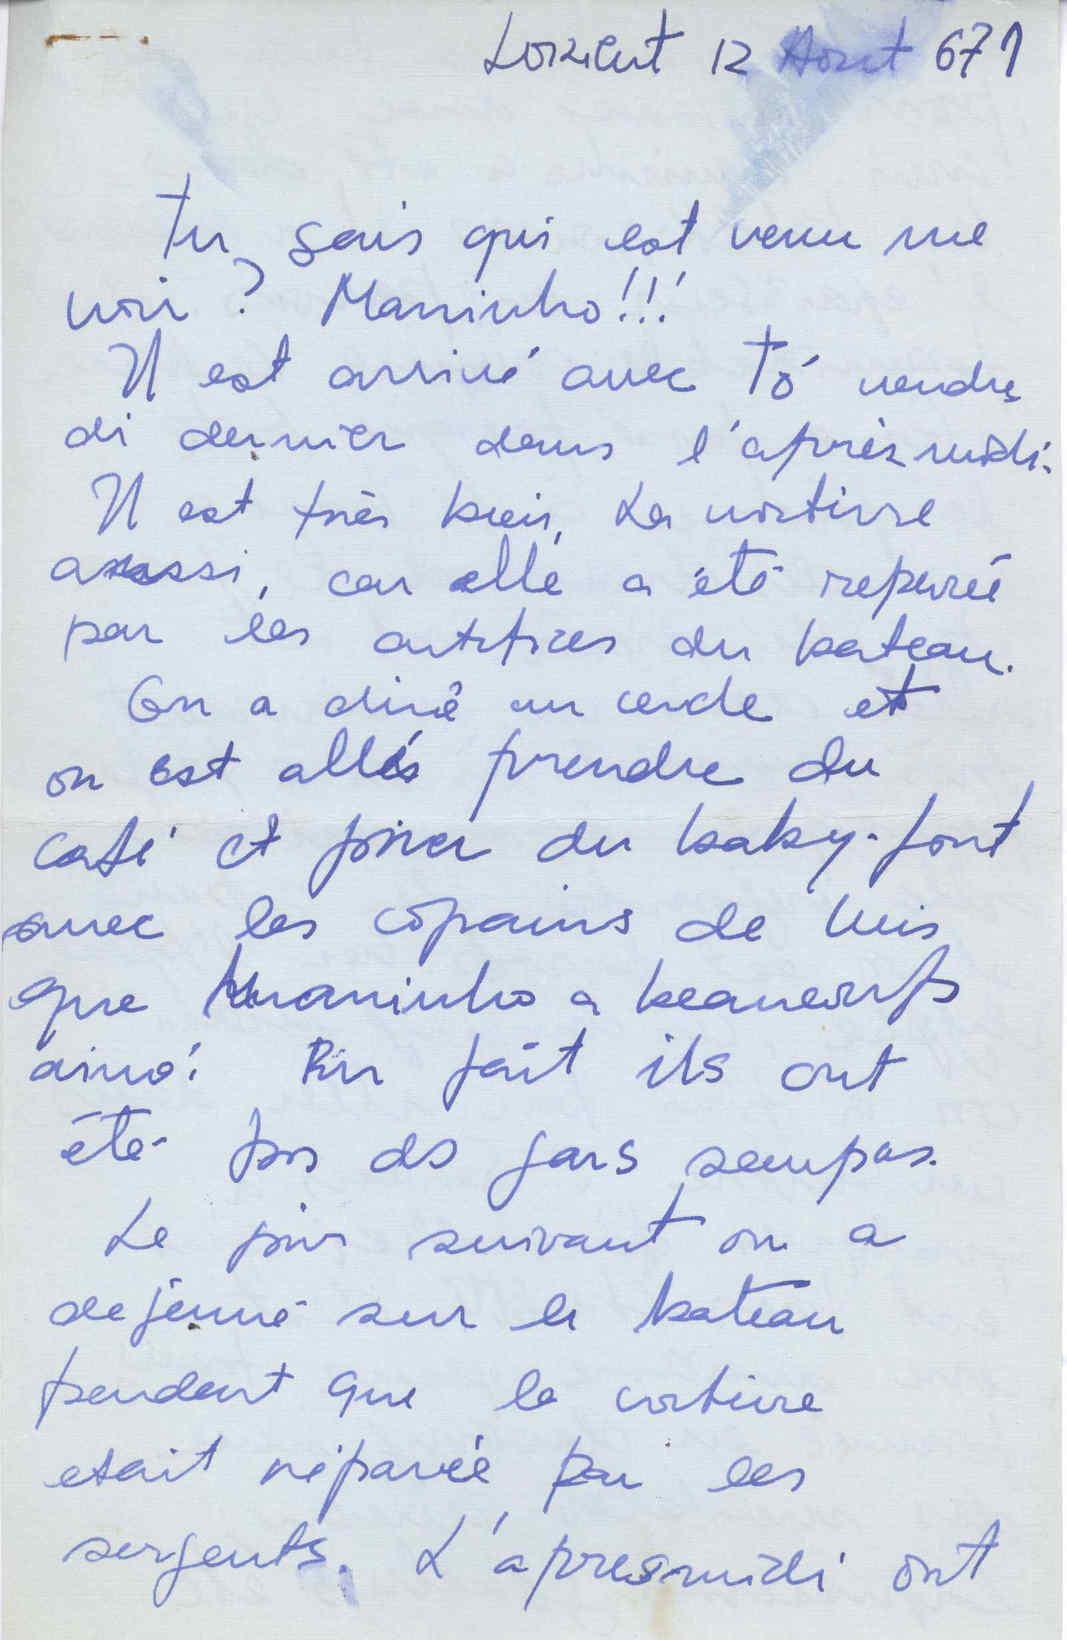 Lorient 12 Aout 671
Tu sais qui est venu me
voir? Maninho!!!
Il est arrivé avec Tó vendre
di dernier dans l'aprés midi.
Il est très bien, La voiture
aussi, car elle a été reparée
par les artifices du bateau.
On a diné au cercle et
on est allés prendre du
café et joüer du baby-foot
avec les copains de Luis
que Maninho a beaucoup
aimé! En fait ils ont
été des gars sympas.
Le jour suivant on a
dejeuné sur le bateau
pendant que la voiture
etait réparée par les
sergents. L'apresmidi ont